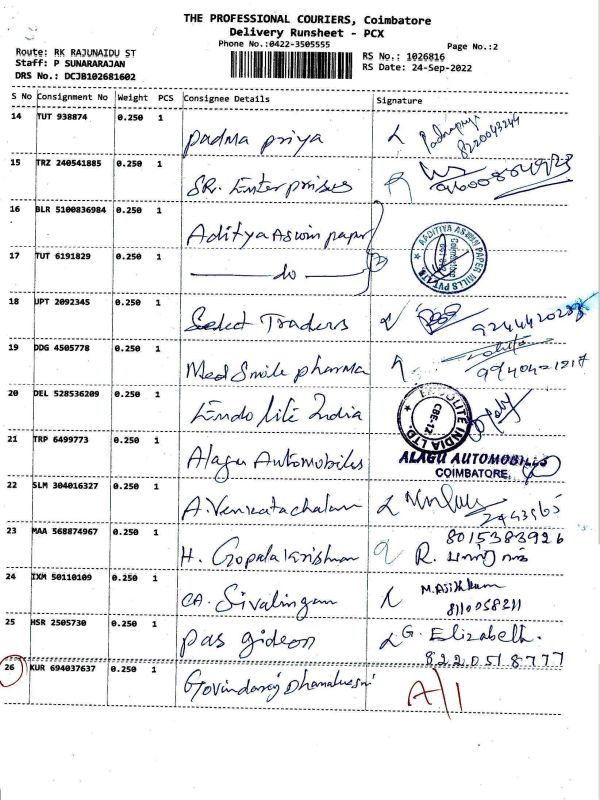 THE PROFESSIONAL COURIERS, Coimbatore
Delivery Runsheet - PCX
Phone No.:0422-3505555 Page No.:2
Route: RK RAJUNAIDU ST RS No.: 1026816
Staff: P SUNARARAJAN RS Date: 24-Sep-2022
DRS No.: DCJB102681602
S No Consignment No Weight PCS Consignee Details Signature
14 TUT 938874 0.250 1
Padma priya
8220043244
15 TRZ 240541885 0.250 1
SR. Enterprises
16 BLR 5100836984 0.250 1
Aditya Aswin paper
AADITIYA ASWIN PAPER MILLS PVT LTD.
17 TUT 6191829 0.250 1
do
18 UPT 2092345 0.250 1
Select Traders
19 DDG 4505778 0.250 1
Med Smile pharma
20 DEL 528536209 0.250 1
Endo lite India
ENDOLITE INDIA LTD. CBE-12
21 TRP 6499773 0.250 1
Alagu Automobiles
ALAGU AUTOMOBILES
COIMBATORE
22 SLM 304016327 0.250 1
A. Venkatachalam
23 MAA 568874967 0.250 1 8015383926
H. Gopalakrishnan R.
24 IXM 50110109 0.250 1
CA. Sivalingam
8110058211
25 HSR 2505730 0.250 1
pas gideon G. Elizabeth.
8220518777
26 KUR 694037637 0.250 1
Govindaraj A/1